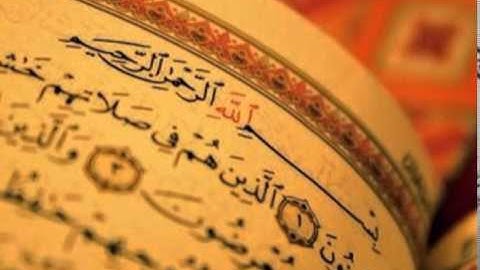 بِسْمِ ٱللَّهِ ٱلرَّحْمَٰنِ ٱلرَّحِيمِ
١ ٱلَّذِينَ هُمْ فِي صَلَاتِهِمْ
مُعْرِضُونَ ٣ وَٱلَّذِينَ